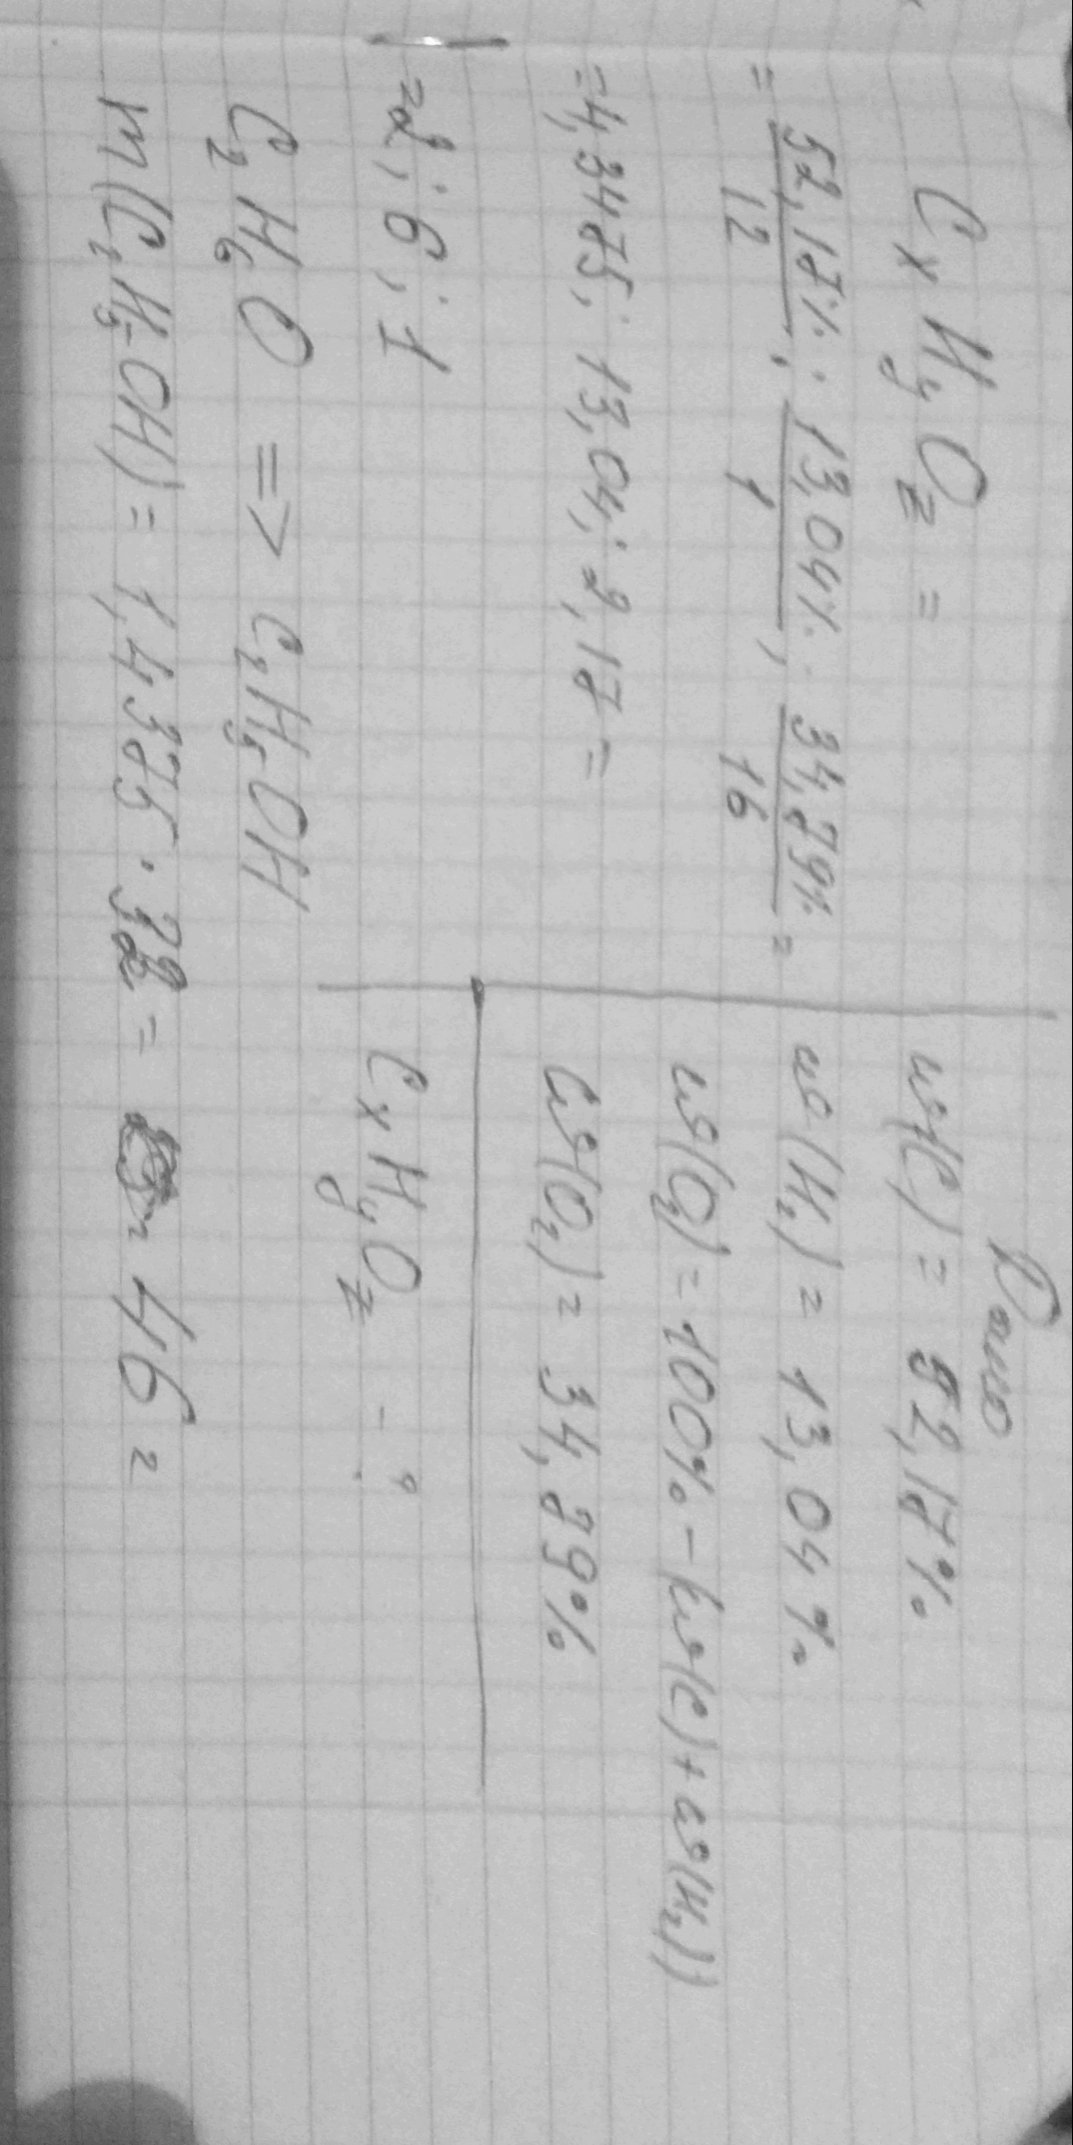 Дано
ω(C) = 52,17%
ω(H₂) = 13,04%
ω(O₂) = 100% - (ω(C) + ω(H₂))
ω(O₂) = 34,79%
CₓHᵧO_z - ?
CₓHᵧO_z =
= 52,17% / 12 : 13,04% / 1 : 34,79% / 16 =
= 4,3475 : 13,04 : 2,17 =
= 2 : 6 : 1
C₂H₆O => C₂H₅OH
m(C₂H₅OH) = 1,4375 · 32 = 46 г